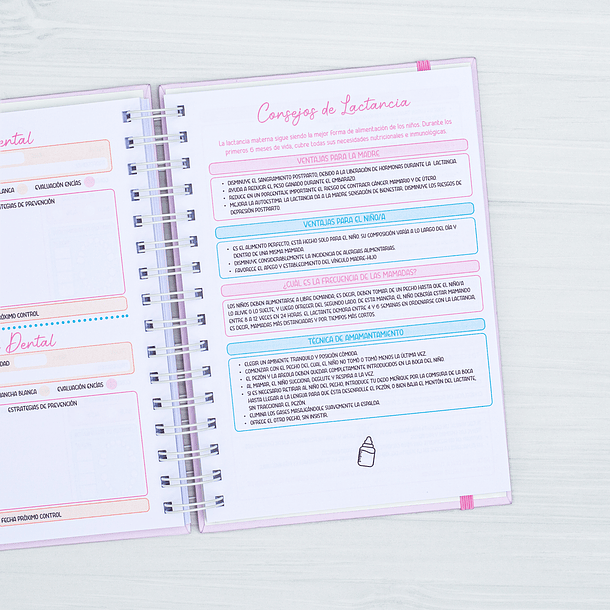 ental
LANCA
EVALUACIÓN ENCÍAS
RATEGIAS DE PREVENCIÓN
PRÓXIMO CONTROL
Dental
DAD
MANCHA BLANCA
EVALUACIÓN ENCÍAS
ESTRATEGIAS DE PREVENCIÓN
FECHA PRÓXIMO CONTROL
Consejos de Lactancia
La lactancia materna sigue siendo la mejor forma de alimentación de los niños. Durante los
primeros 6 meses de vida, cubre todas sus necesidades nutricionales e inmunológicas.
VENTAJAS PARA LA MADRE
• DISMINUYE EL SANGRAMIENTO POSTPARTO, DEBIDO A LA LIBERACIÓN DE HORMONAS DURANTE LA LACTANCIA
• AYUDA A REDUCIR EL PESO GANADO DURANTE EL EMBARAZO.
• REDUCE EN UN PORCENTAJE IMPORTANTE EL RIESGO DE CONTRAER CÁNCER MAMARIO Y DE ÚTERO
• MEJORA LA AUTOESTIMA. LA LACTANCIA DA A LA MADRE SENSACIÓN DE BIENESTAR, DISMINUYE LOS RIESGOS DE
DEPRESIÓN POSTPARTO.
VENTAJAS PARA EL NIÑO/A
• ES EL ALIMENTO PERFECTO, ESTÁ HECHO SOLO PARA EL NIÑO. SU COMPOSICIÓN VARÍA A LO LARGO DEL DÍA Y
DENTRO DE UNA MISMA MAMADA.
• DISMINUYE CONSIDERABLEMENTE LA INCIDENCIA DE ALERGIAS ALIMENTARIAS.
• FAVORECE EL APEGO Y ESTABLECIMIENTO DEL VÍNCULO MADRE-HIJO
¿CUÁL ES LA FRECUENCIA DE LAS MAMADAS?
LOS NIÑOS DEBEN ALIMENTARSE A LIBRE DEMANDA, ES DECIR, DEBEN TOMAR DE UN PECHO HASTA QUE EL NIÑO/A
LO ALIVIE O LO SUELTE, Y LUEGO OFRECER DEL SEGUNDO LADO. DE ESTA MANERA, EL NIÑO DEBERÍA ESTAR MAMANDO
ENTRE 8 A 12 VECES EN 24 HORAS. EL LACTANTE DEMORA ENTRE 4 Y 6 SEMANAS EN ORDENARSE CON LA LACTANCIA,
ES DECIR, MAMADAS MÁS DISTANCIADAS Y POR TIEMPOS MÁS CORTOS.
TÉCNICA DE AMAMANTAMIENTO
• ELEGIR UN AMBIENTE TRANQUILO Y POSICIÓN CÓMODA.
• COMENZAR CON EL PECHO DEL CUAL EL NIÑO NO TOMÓ O TOMÓ MENOS LA ÚLTIMA VEZ.
• EL PEZÓN Y LA AREOLA DEBEN QUEDAR COMPLETAMENTE INTRODUCIDOS EN LA BOCA DEL NIÑO.
• AL MAMAR, EL NIÑO SUCCIONA, DEGLUTE Y RESPIRA A LA VEZ.
• SI ES NECESARIO RETIRAR AL NIÑO DEL PECHO, INTRODUCE TU DEDO MEÑIQUE POR LA COMISURA DE LA BOCA
HASTA LLEGAR A LA LENGUA PARA QUE ÉSTA DESENROLLE EL PEZÓN, O BIEN BAJA EL MENTÓN DEL LACTANTE,
SIN TRACCIONAR EL PEZÓN.
• ELIMINA LOS GASES MASAJEÁNDOLE SUAVEMENTE LA ESPALDA.
• OFRECE EL OTRO PECHO, SIN INSISTIR.